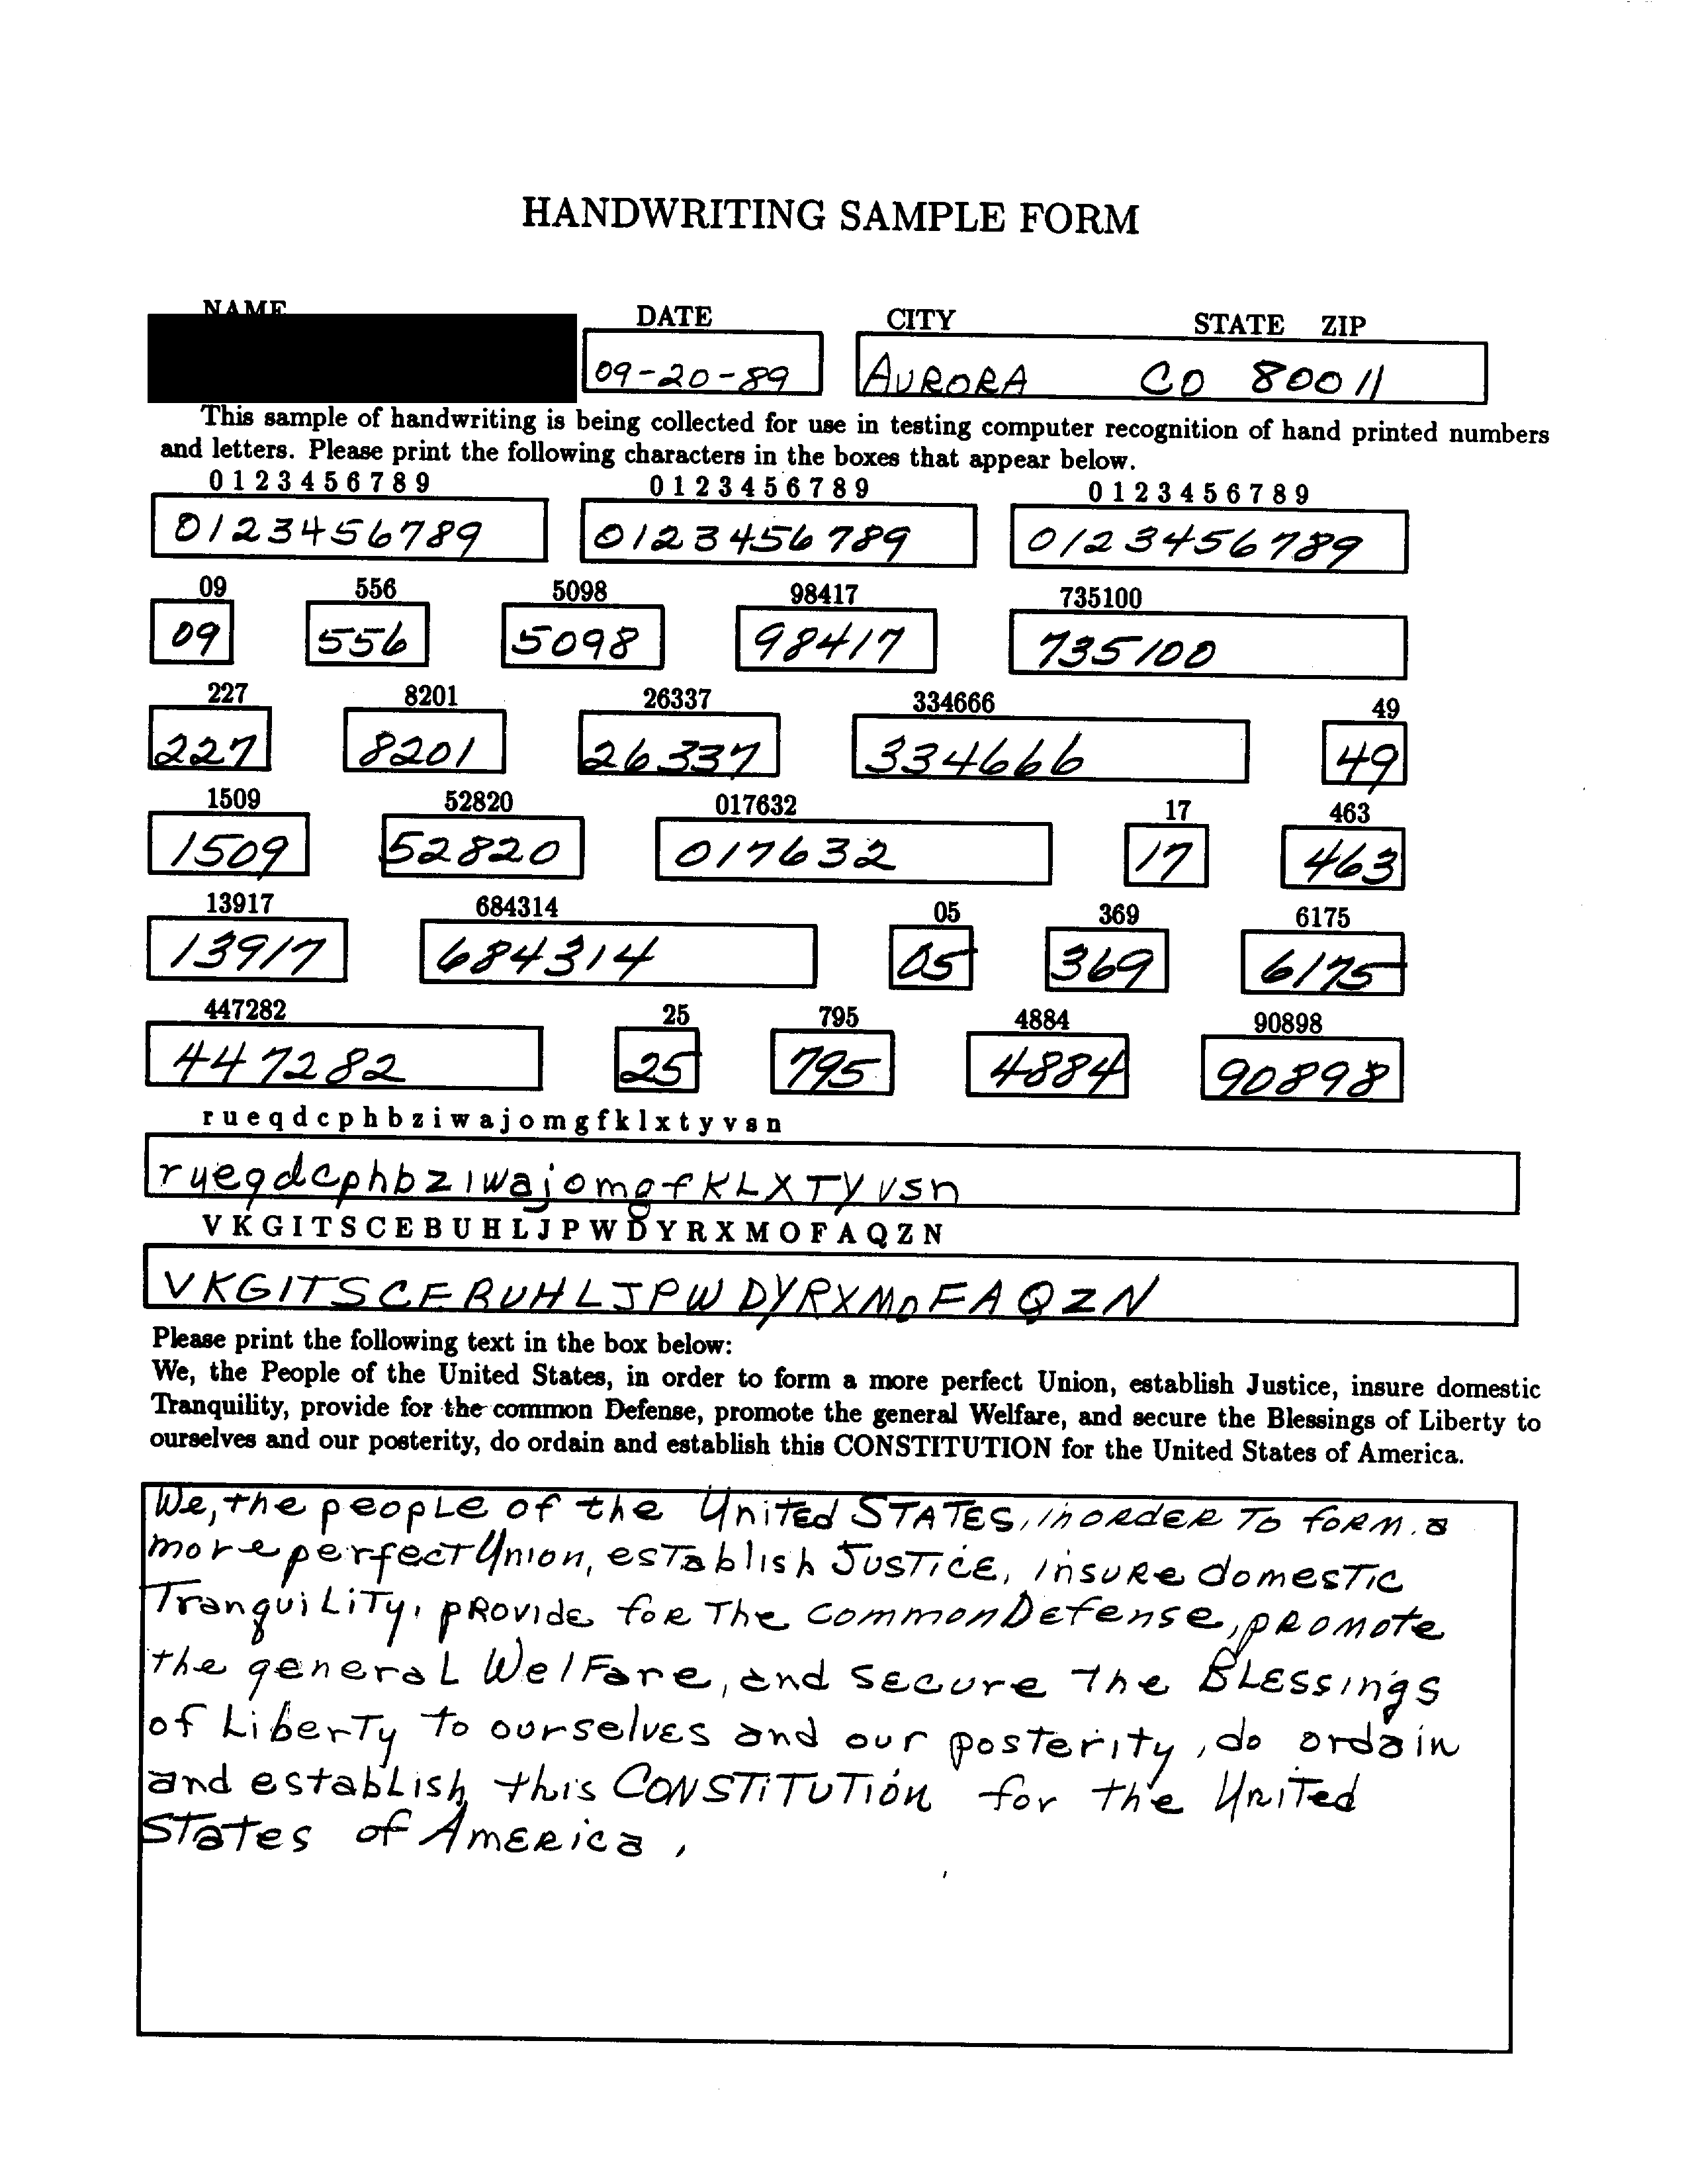 HANDWRITING SAMPLE FORM
NAME DATE CITY STATE ZIP
09-20-89 AURORA CO 80011
This sample of handwriting is being collected for use in testing computer recognition of hand printed numbers
and letters. Please print the following characters in the boxes that appear below.
0 1 2 3 4 5 6 7 8 9 0 1 2 3 4 5 6 7 8 9 0 1 2 3 4 5 6 7 8 9
0123456789 0123456789 0123456789
09 556 5098 98417 735100
09 556 5098 98417 735100
227 8201 26337 334666 49
227 8201 26337 334666 49
1509 52820 017632 17 463
1509 52820 017632 17 463
13917 684314 05 369 6175
13917 684314 05 369 6175
447282 25 795 4884 90898
447282 25 795 4884 90898
r u e q d c p h b z i w a j o m g f k l x t y v s n
rueqdcphbziwajomgfKLXTYvsn
V K G I T S C E B U H L J P W D Y R X M O F A Q Z N
VKGITSCEBUHLJPWDYRXMOFAQZN
Please print the following text in the box below:
We, the People of the United States, in order to form a more perfect Union, establish Justice, insure domestic
Tranquility, provide for the common Defense, promote the general Welfare, and secure the Blessings of Liberty to
ourselves and our posterity, do ordain and establish this CONSTITUTION for the United States of America.
We, the peopLe of the UniTEd STATES, in ORdER To foRM. a
more perfecT Union, esTablish JusTicE, insuRe domesTic
TranquiLiTy, pRovide foR The common Defense, pRomote
the generaL WelFare, and secure The BLEssings
of LiberTy to ourselves and our posTerity, do ordain
and establish this CONSTiTUTiON for the UniTed
STaTes of AmERica.